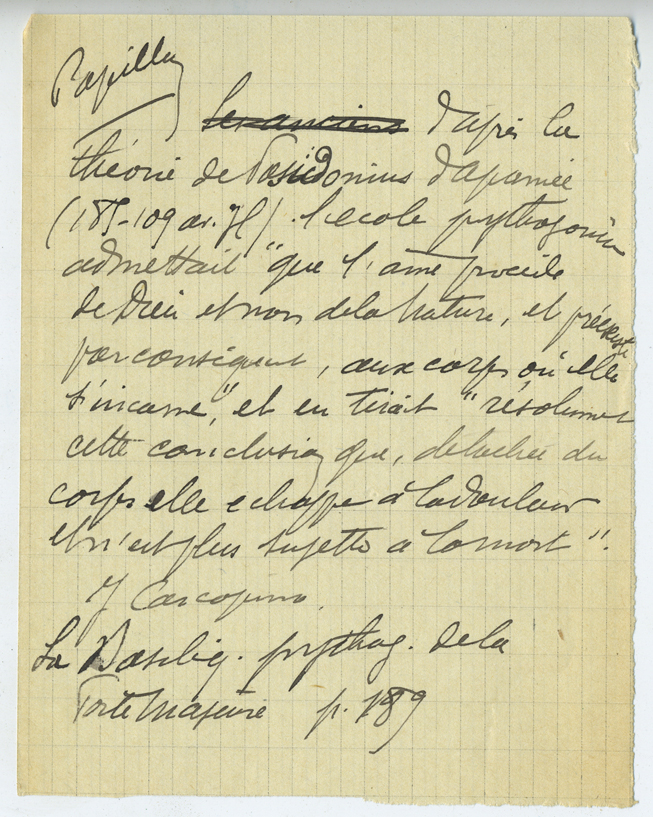 Papillon
les anciens d'après la
théorie de Posidonius d'Apamée
(185-109 av. JC). l'école pythagoricien
admettait "que l'âme procède
de Dieu et non de la Nature, et préexiste
par conséquent, aux corps où elle
s'incarne", et en tirait "résolument
cette conclusion que, détachée du
corps elle échappe à la douleur
et n'est plus sujette à la mort".
J Carcopino.
La Basiliq. pythag. de la
Porte Majeure p. 189